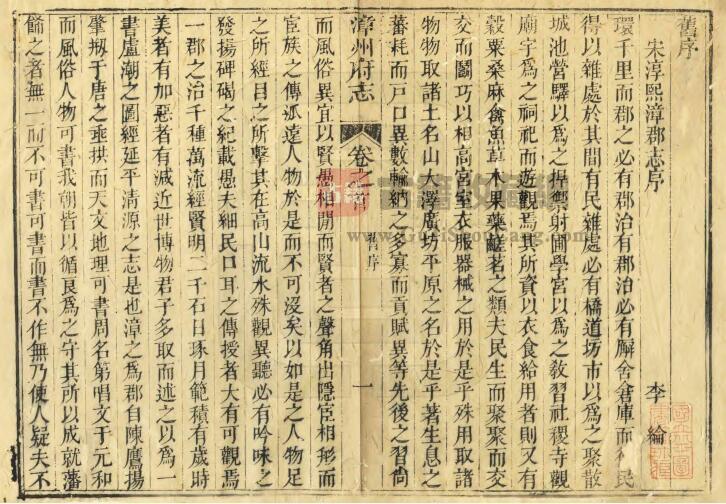 舊序
宋淳熙漳郡志序
李綸
環千里而郡之必有郡治有郡治必有廨舍倉庫而神民
得以雜處於其間有民雜處必有橋道坊市以爲之聚散
城池營驛以爲之捍禦射圃學宮以爲之敎習社稷寺觀
廟宇爲之祠祀而遊觀焉其所資以衣食給用者則又有
穀粟桑麻禽魚草木果藥鹺茗之類夫民生而聚聚而交
交而鬬巧以相高宮室衣服器械之用於是乎殊用取諸
物物取諸土名山大澤廣坊平原之名於是乎著生息之
蕃耗而戸口異數輸納之多寡而貢賦異等先後之習尙
漳州府志 卷之首 舊序 一
而風俗異宜以賢愚相閒而賢者之聲角出隱宦相形而
宦族之傳派遠人物於是而不可沒矣以如是之人物足
之所經目之所擊其在高山流水殊觀異聽必有吟咏之
發揚碑碣之紀載愚夫細民口耳之傳授者大有可觀焉
一郡之治千種萬流經賢明二千石日琢月範積有歲時
美者有加惡者有滅近世博物君子多取而述之以爲一
書盧潮之圖經延平清源之志是也漳之爲郡自陳鷹揚
肇剏于唐之垂拱而天文地理可書周名第唱文于元和
而風俗人物可書我朝皆以循良爲之守其所以成就藩
餙之者無一而不可書可書而書不作無乃使人疑夫不